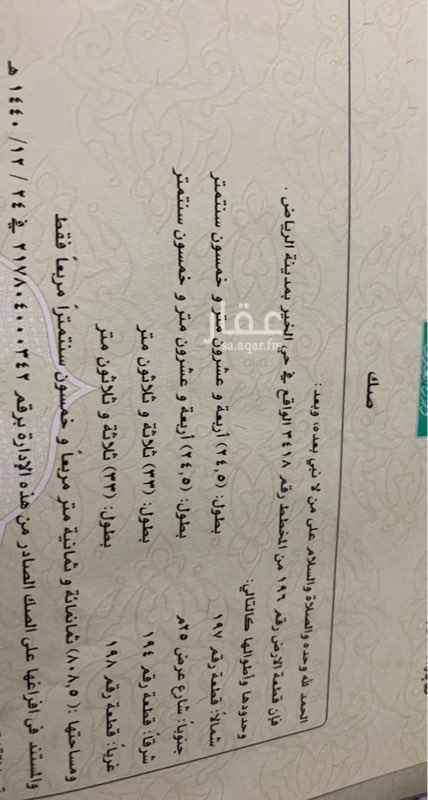 صك
الحمد لله وحده والصلاة والسلام على من لا نبي بعده، وبعد:
فإن قطعة الارض رقم ١٩٦ من المخطط رقم ٣٤١٨ الواقع في حي الخير بمدينة الرياض .
وحدودها وأطوالها كالتالي:
شمالاً: قطعة رقم ١٩٧ بطول: (٢٤,٥) أربعة و عشرون متر و خمسون سنتمتر
جنوباً: شارع عرض ٢٥م بطول: (٢٤,٥) أربعة و عشرون متر و خمسون سنتمتر
شرقاً: قطعة رقم ١٩٤ بطول: (٣٣) ثلاثة و ثلاثون متر
غرباً: قطعة رقم ١٩٨ بطول: (٣٣) ثلاثة و ثلاثون متر
ومساحتها :(٨٠٨,٥) ثمانمائة و ثمانية متر مربعاً و خمسون سنتمتراً مربعاً فقط
والمستند في افراغها على الصك الصادر من هذه الإدارة برقم ٢١٧٨٠٤٠٠٠٣٤٢ في ٢٤ / ١٢ / ١٤٤٠ هـ
عقار
sa.aqar.fm